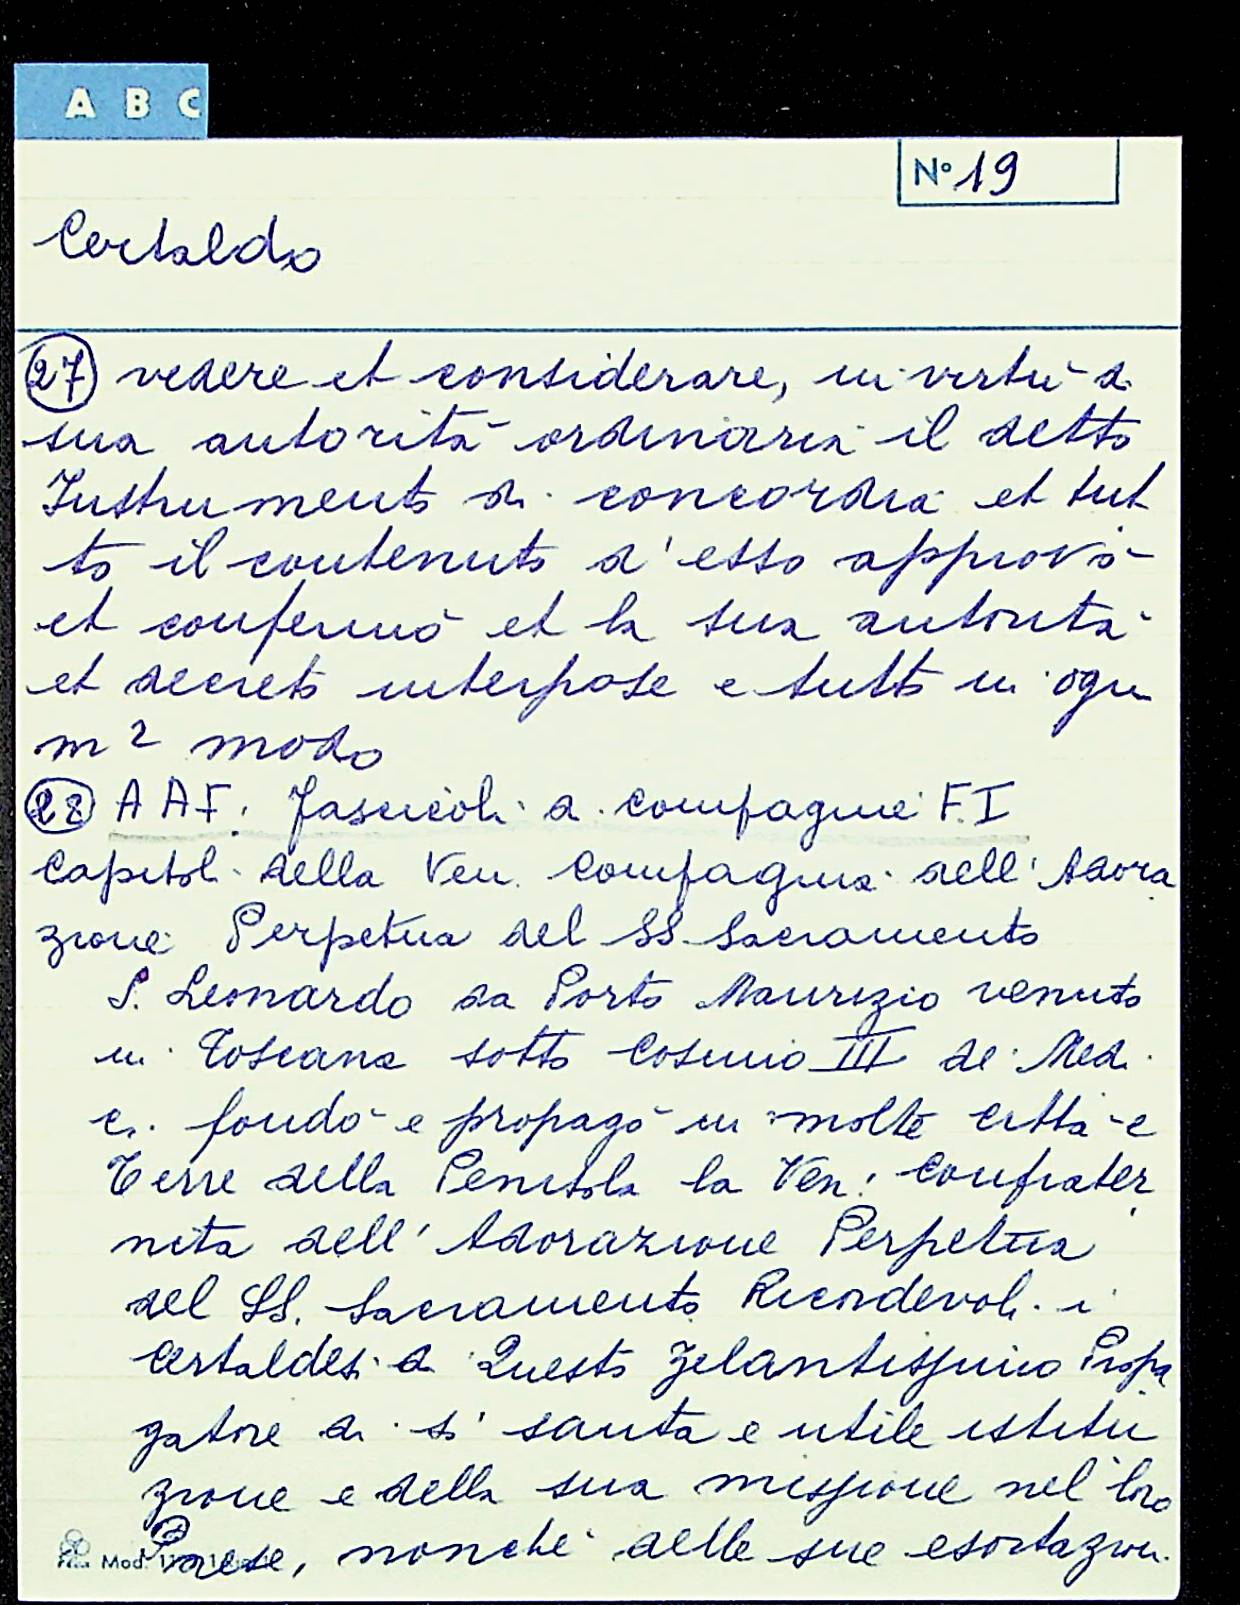 A B C
N° 19
Certaldo
27 vedere et considerare, in virtù di
sua autorità ordinaria il detto
Instrumento di concordia et tut
to il contenuto d'esso approvò
et confermò et la sua autorità
et decreto interpose e tutto in ogni
m 2 modo
28 A A F. Fascicoli di compagnie F. I
Capitoli della Ven. Compagnia dell'Adora
zione Perpetua del SS. Sacramento
S. Leonardo da Porto Maurizio venuto
in Toscana sotto Cosimo III de' Med
ci fondò e propagò in molte città e
Terre della Penisola la Ven: Confrater
nita dell'Adorazione Perpetua
del SS. Sacramento Ricordevoli i
Certaldesi di Questo Zelantissimo Propa
gatore di sì santa e utile istitu
zione e della sua missione nel loro
Paese, nonché delle sue esortazioni
Mod.